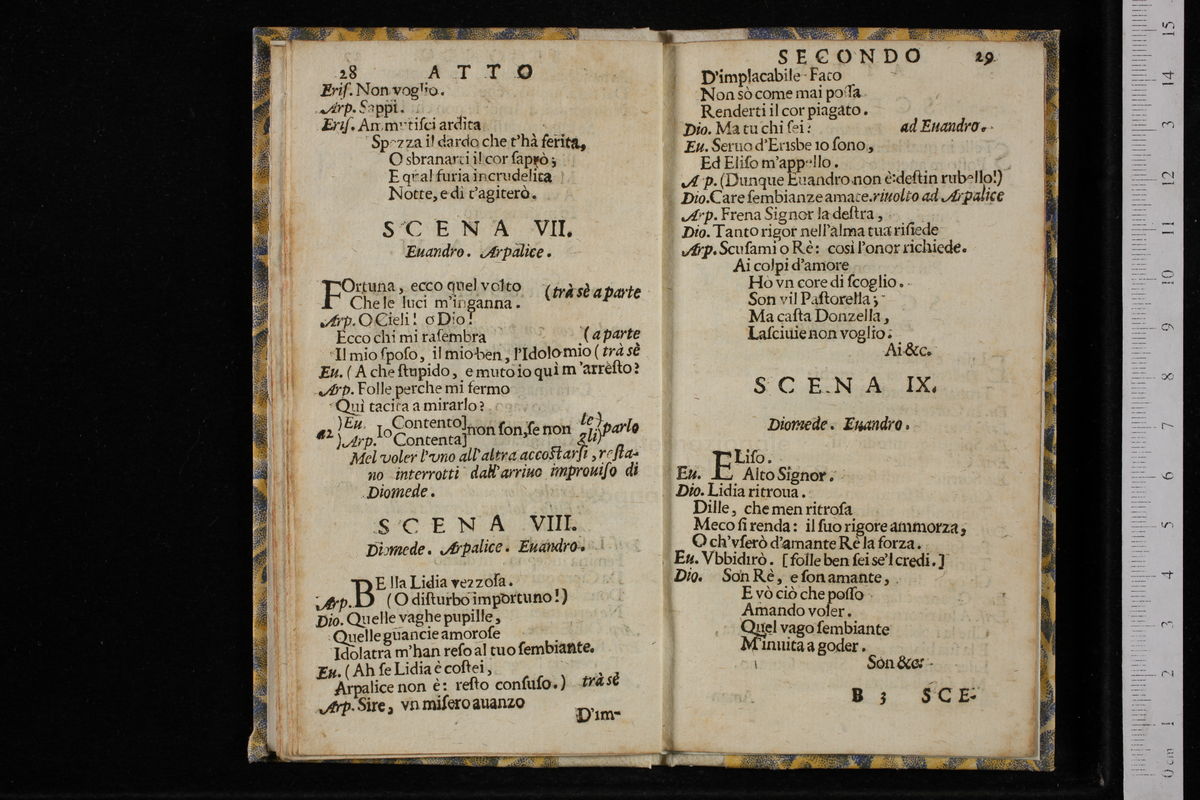 28 ATTO
Eriſ. Non voglio.
Arp. Sappi.
Eriſ. Ammutiſci ardita
Spezza il dardo che t'hà ferita,
O sbranarti il cor ſaprò;
E qual furia incrudelita
Notte, e di t'agiterò.
SCENA VII.
Euandro. Arpalice.
FOrtuna, ecco quel volto (trà sè a parte
Che le luci m'inganna.
Arp. O Cieli! o Dio!
Ecco chi mi raſembra (a parte
Il mio ſpoſo, il mio ben, l'Idolo mio (trà sè
Eu. (A che ſtupido, e muto io quì m'arreſto?
Arp. Folle perche mi fermo
Quì tacita a mirarlo?
a2 )Eu. Io Contento] non ſon, ſe non le) parlo
)Arp. Contenta] gli)
Mel voler l'vno all'altra accoſtarſi, reſta-
no interrotti dall'arriuo improuiſo di
Diomede.
SCENA VIII.
Diomede. Arpalice. Euandro.
BElla Lidia vezzoſa.
Arp. (O diſturbo importuno!)
Dio. Quelle vaghe pupille,
Quelle guancie amoroſe
Idolatra m'han reſo al tuo ſembiante.
Eu. (Ah ſe Lidia è coſtei,
Arpalice non è: reſto confuſo.) trà sè
Arp. Sire, vn miſero auanzo
D'im-
SECONDO 29
D'implacabile Fato
Non sò come mai poſſa
Renderti il cor piagato.
Dio. Ma tu chi ſei? ad Euandro.
Eu. Seruo d'Erisbe io ſono,
Ed Eliſo m'appello.
Arp. (Dunque Euandro non è: deſtin rubello!)
Dio. Care ſembianze amate. riuolto ad Arpalice
Arp. Frena Signor la deſtra,
Dio. Tanto rigor nell'alma tua riſiede
Arp. Scuſami o Rè: così l'onor richiede.
Ai colpi d'amore
Ho vn core di ſcoglio.
Son vil Paſtorella;
Ma caſta Donzella,
Laſciuie non voglio.
Ai &c.
SCENA IX.
Diomede. Euandro.
ELiſo.
Eu. Alto Signor.
Dio. Lidia ritroua.
Dille, che men ritroſa
Meco ſi renda: il ſuo rigore ammorza,
O ch'vſerò d'amante Rè la forza.
Eu. Vbbidirò. [folle ben ſei se'l credi.]
Dio. Son Rè, e ſon amante,
E vò ciò che poſſo
Amando voler.
Quel vago ſembiante
M'inuita a goder.
Son &c.
B 3 SCE-
0 cm 1 2 3 4 5 6 7 8 9 10 11 12 3 14 15